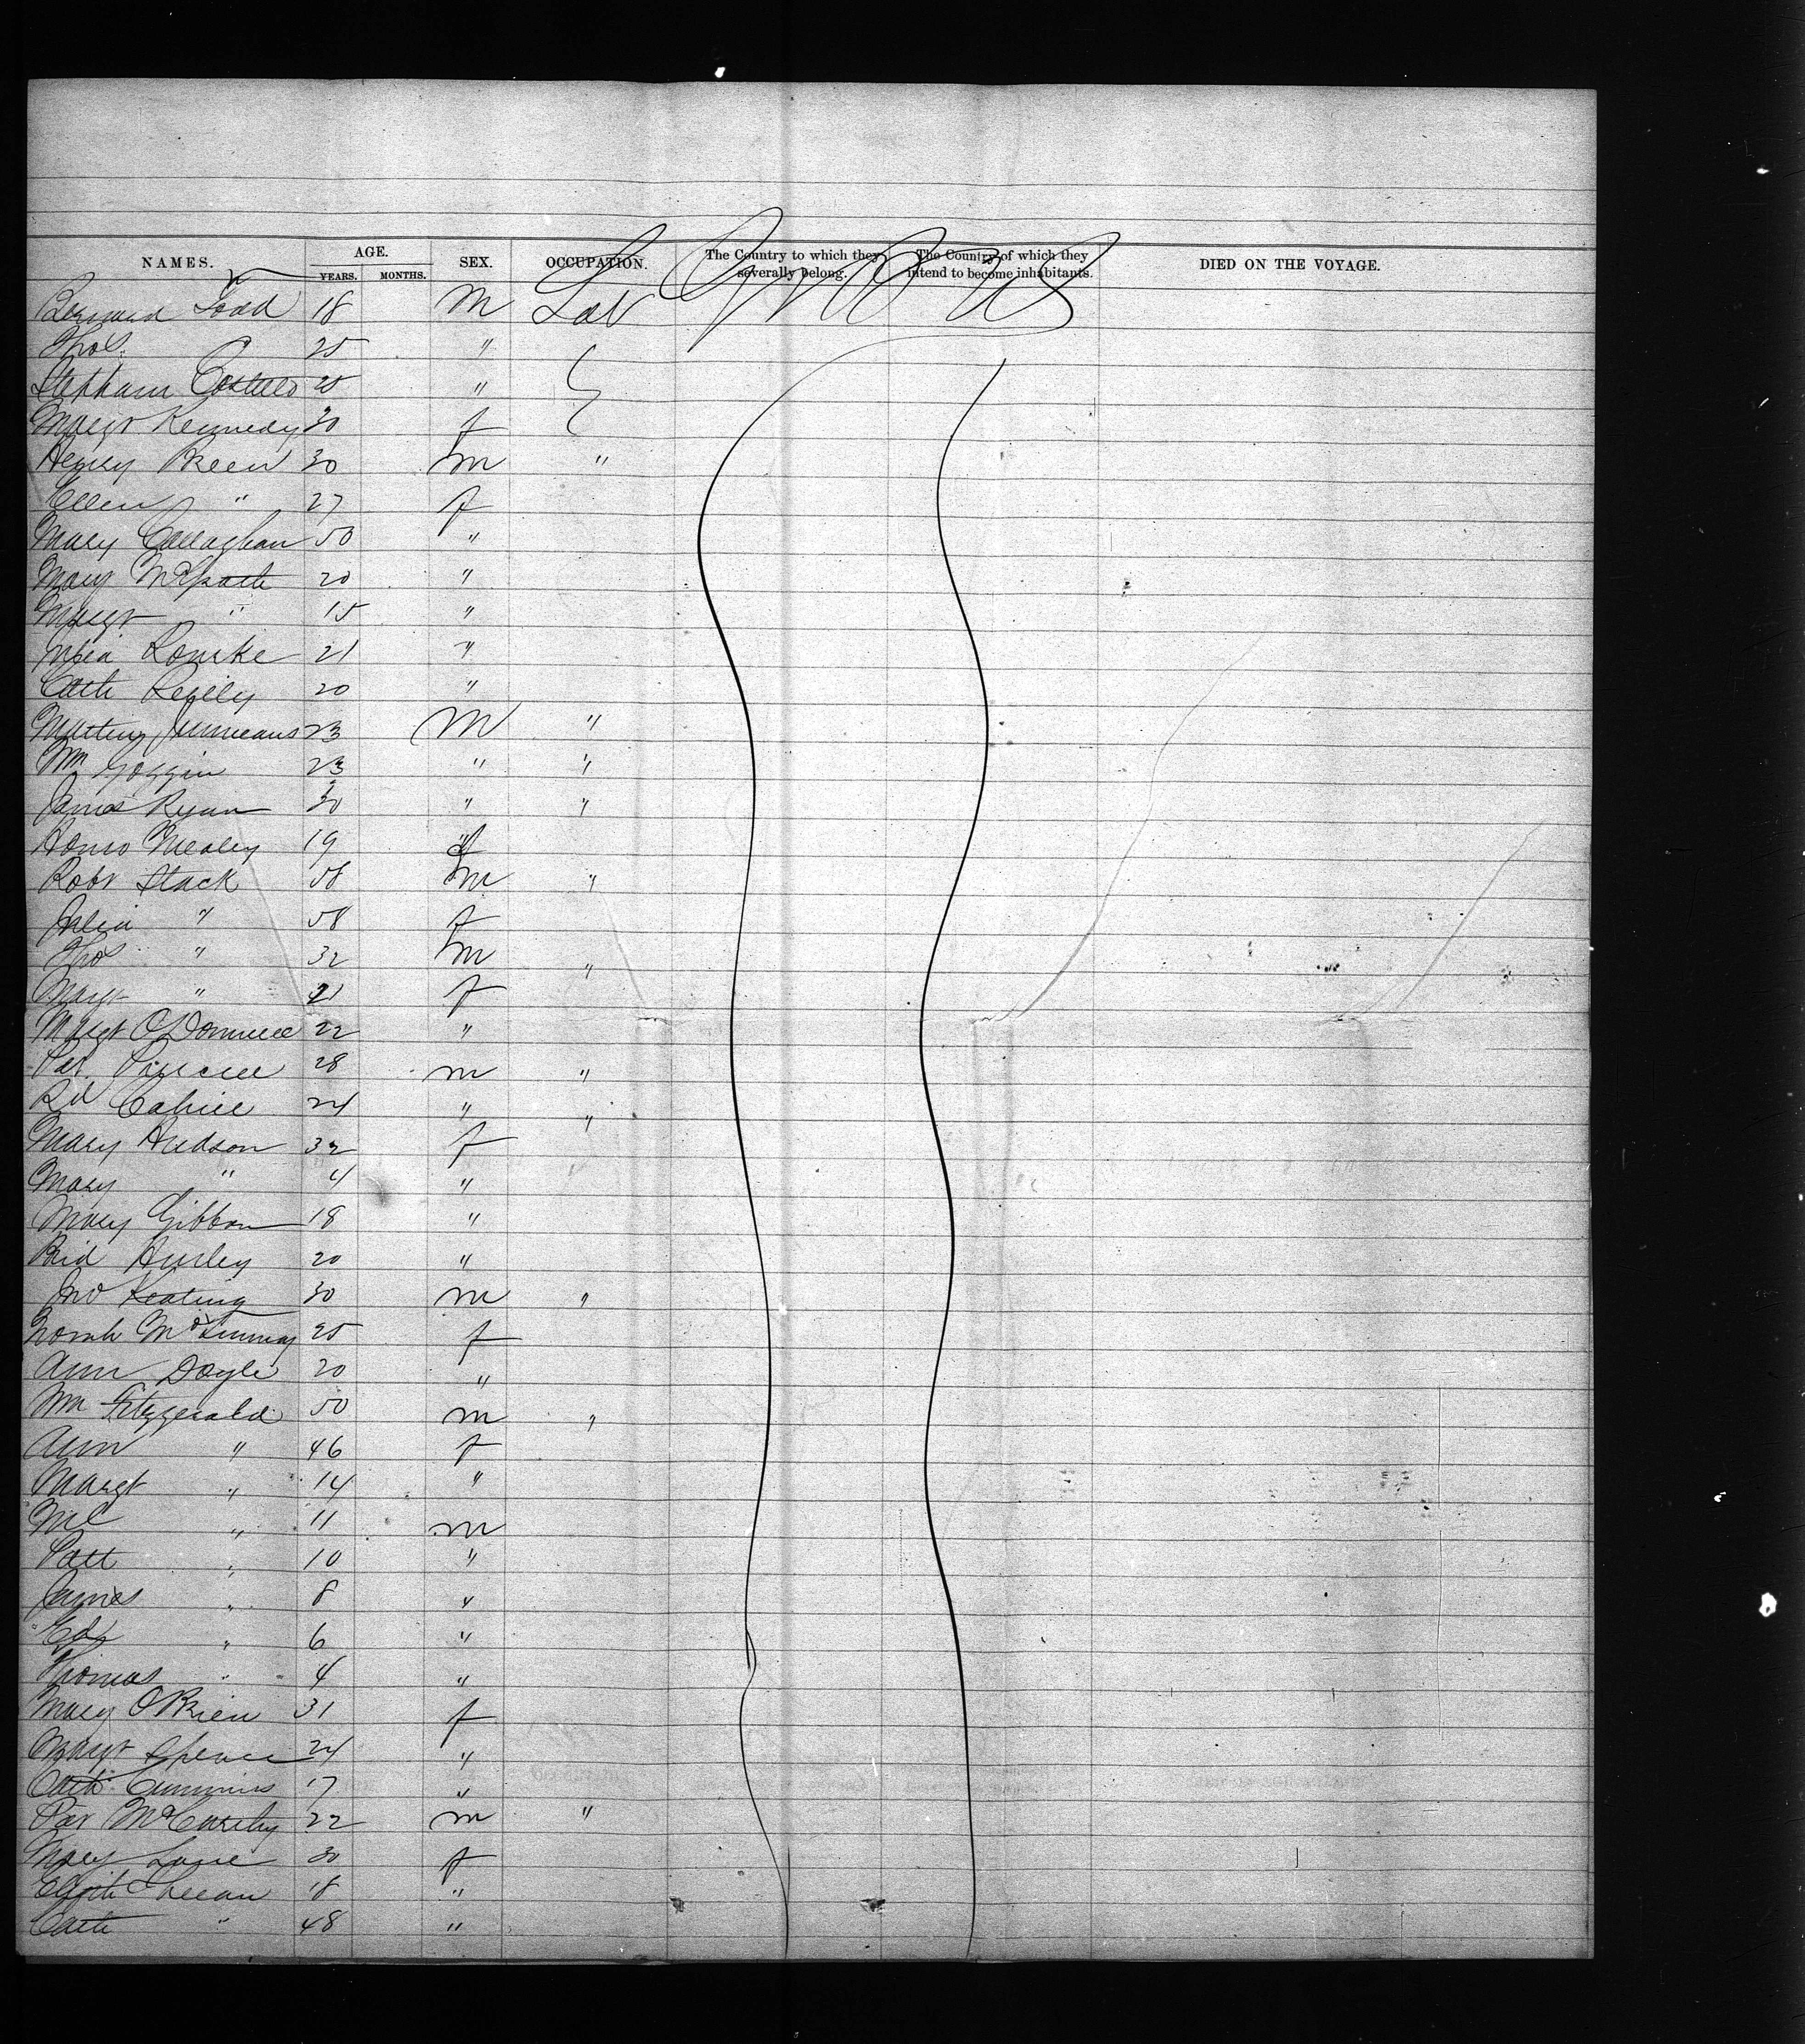 NAMES. AGE. SEX. OCCUPATION. The Country to which they severally belong. The Country of which they intend to become inhabitants. DIED ON THE VOYAGE.
YEARS. MONTHS.
Bernard Todd 18 M Lab U S
Thos. 25 "
Costello 25 "
Margt Kennedy 30 f
Henry Breen 30 m "
Ellen " 27 f
Mary Callaghan 50 "
Mary McGrath 20 "
Margt " 15 "
Julia Rourke 21 "
Cath Reilly 20 "
23 M "
Wm Goggin 23 " "
James Ryan 30 " "
Mealey 19 f
Robt Stack 58 m "
Julia " 58 f
Thos " 32 m "
Margt " 21 f
Margt O'Donnell 22 "
Pat. 28 m "
Cahill 24 " "
Mary Hudson 32 f
Mary " 4 "
Mary Gibbon 18 "
Brid Hurley 20 "
Jno Keating 30 m "
Norah 25 f
Ann Doyle 20 "
Wm Fitzgerald 50 m "
Ann " 46 f
Margt " 14 "
Ml " 11 m
Patt " 10 "
James " 8 "
Ed " 6 "
Thomas " 4 "
Mary O'Brien 31 f
Margt Spence 24 "
Cath Cummins 17 "
Pat McCarthy 22 m "
Mary Lane 30 f
18 "
Cath " 48 "